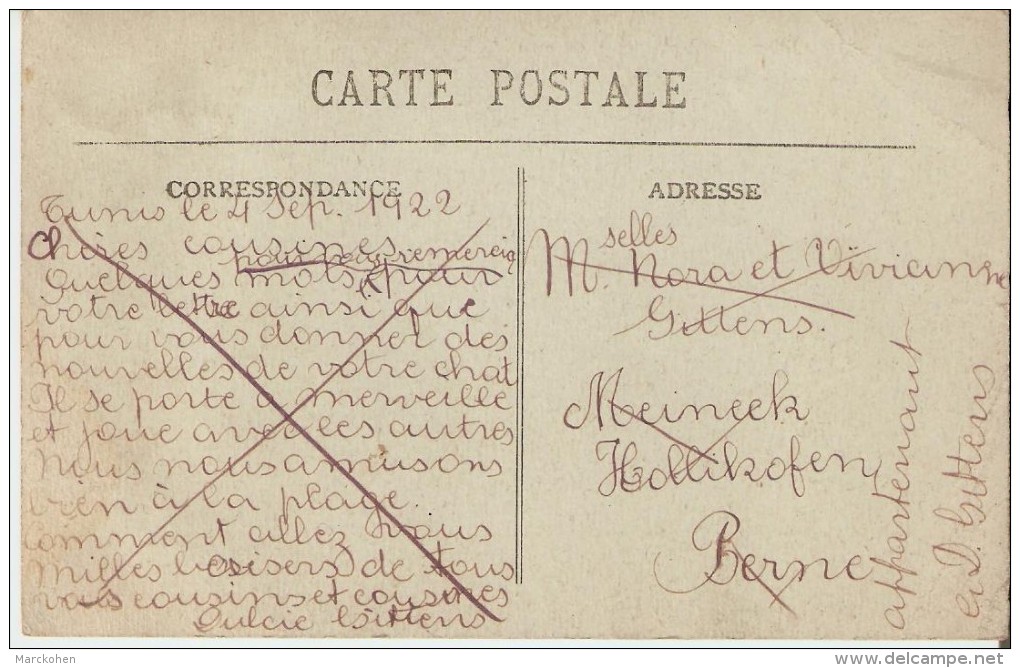 CARTE POSTALE
CORRESPONDANCE
Tunis le 4 Sep. 1922
Chères cousines
pour vous remercier
Quelques mots pour
votre lettre ainsi que
pour vous donner des
nouvelles de votre chat
Il se porte à merveille
et joue avec les autres
Nous nous amusons
bien à la plage.
Comment allez vous
Milles besisers de tous
vos cousins et cousines
Dulcie Gittens
ADRESSE
Mselles Nora et Vivianne
Gittens.
Meineck
Hollikofen
Berne
appartenant
à D. Gittens
Marckohen
delcampe.net